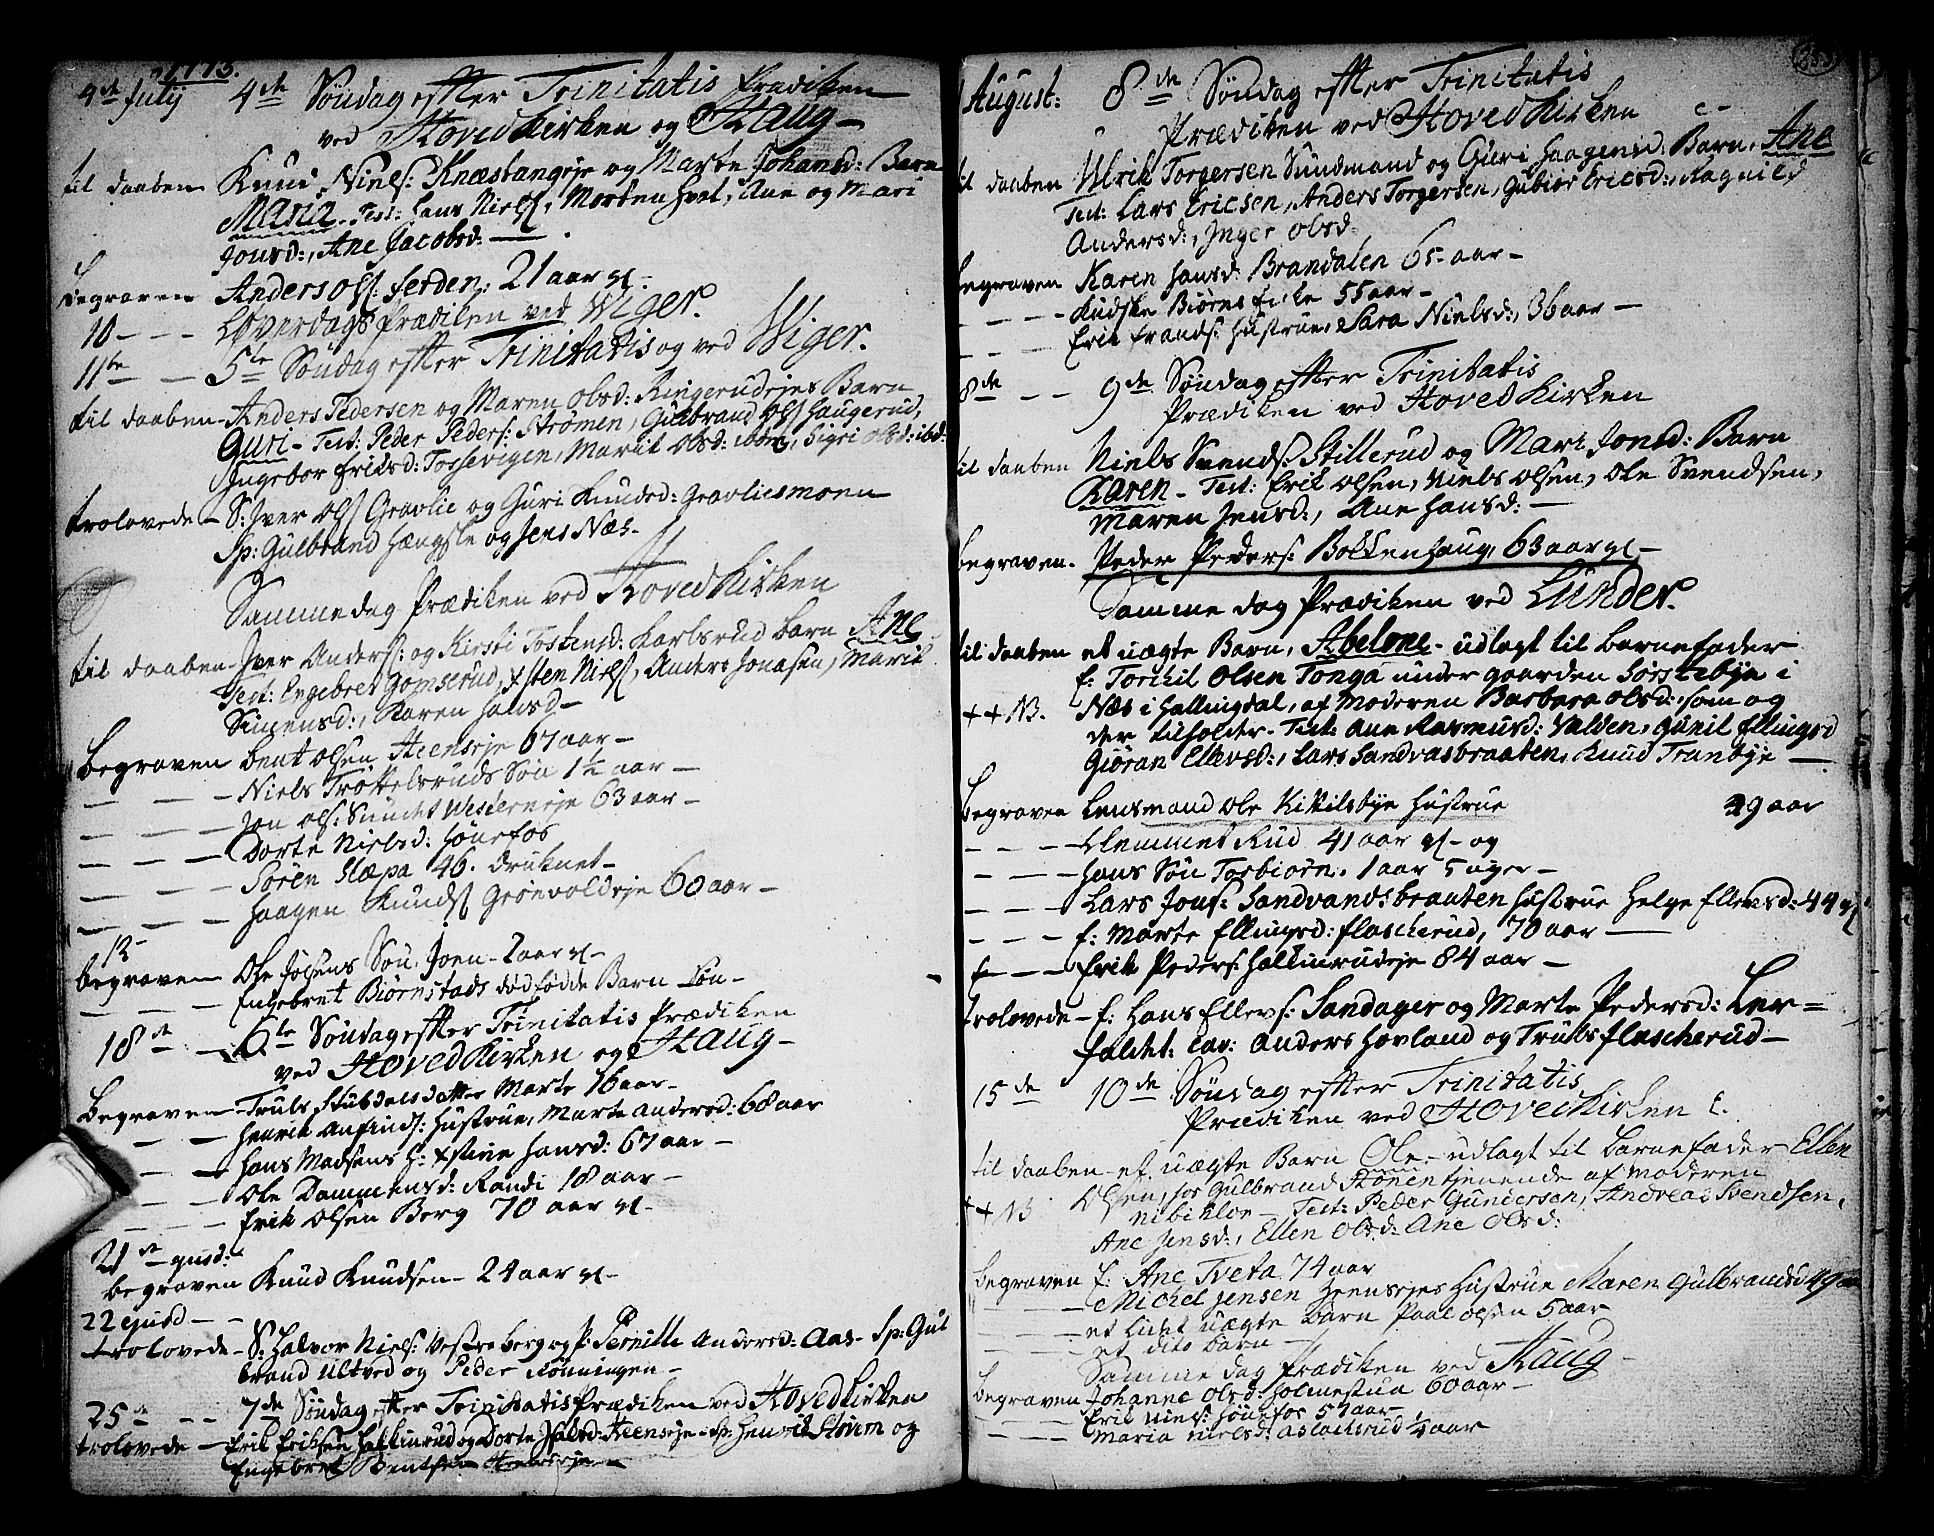 1773.
4de July 4de Søndag efter Trinitatis Prædiken
ved Hoved Kirken og Haug-
til daaben Knud Niels: Knæstangeje og Marte Johansd: Barn
Maria - Test: Hans Niels:, Morten Hval, Ane og Mari
Jonsd:, Ane Jacobsd: -
Begraven Anders Ols: ferden, 21 aar
10 - - - Løverdags Prædiken ved Wiger.
11te - - 5te Søndag efter Trinitatis og ved Wiger.
til daaben - Anders Pedersen og Maren Olsd: Ringerudejes Barn
Guri - Test: Peder Peders: Strømen, Gulbrand Ols: Haugerud,
Ingebor Eriksd: Tossevigen, Marit Olsd: ibdm, Sigri Olsd: ibd:
trolovede - S: Iver Ols: Gravlie og Guri Knudsd: Gravliesmoen
Sp: Gulbrand Hængsle og Jens Næs-
Samme dag Prædiken ved Hoved Kirken
til daaben - Iver Anders: og Kirsti Tostensd: Karlsrud barn Ane
Test: Engebret Gomserud, Xsten Niels:, Anders Jonasen, Marit
Simensd:, Karen Hansd -
Begraven Bent Olsen Heenseje 67 aar -
- - - Niels Trøttelsruds Søn 1½ aar -
- - - Jon Ols: Sundet Westerneje 63 aar -
- - - Dorte Nielsd: Hønefos
- - - Søren Slæpa 46. druknet -
- - - Haagen Knuds: Gronvoldeje 60 aar -
12
begraven Ole Jolsens Søn, Joen - 2 aar
- - - Engebret Biørnstads dødfødde Barn Søn -
18de - 6te Søndag efter Trinitatis Prædiken
ved Hoved Kirken og Haug -
Begraven - Truls Stubdals datter Marte 16 aar -
- - Henrik Anfinds: Hustrue, Marte Andersd: 68 aar
- - - Hans Madsens H: Xstine Hansd: 67 aar -
- - - Ole Dammensd: Randi 18 aar -
- - - Erik Olsen Berg 70 aar
21de ejusd:
begraven Knud Knudsen - 24 aar
22 ejusd - -
trolovede - S: Halvor Niels: Vestre berg og P: Pernille Andersd: Aas - Sp: Gul
brand Ultved og Peder Rønningen -
25de - - 7de Søndag efter Trinitatis Prædiken ved Hoved Kirken
trolovede - Erik Eriksen Hallinrud og Dorte Heenseje - Sp: Henrik Storm og
Engebret Bentsen Heenseje -
1 August: 8de Søndag efter Trinitatis
Prædiken ved Hoved Kirken
til daaben Ulrik Torgersen Sundmand og Guri Haagensd: Barn, Ane
Test: Lars Ericsen, Anders Torgersen, Gubior Ericsd:, Ragnild
Andersd:, Inger Olsd:
begraven Karen Hansd: Brandalen 65 aar -
- - - Kudske Biørns Enke 55 aar -
- - - Erik Frands: Hustrue, Sara Nielsd:, 36 aar -
8de - - 9de Søndag efter Trinitatis
Prædiken ved Hoved Kirken
til daaben Niels Svends: Stillerud og Mari Jonsd: Barn
Karen - Test: Erik Olsen, Niels Olsen, Ole Svendsen,
Maren Jensd:, Ane Hansd: -
begraven - Peder Peders: Bokkenhaug, 63 aar
Samme dag Prædiken ved Lunder.
til daaben et uægte Barn, Abelone - udlagt til barnefader
f: Torchil Olsen Tonga under gaarden Sørstebye i
++ NB. Næs i Hallingdal, af Moderen Barbara Olsd: som og
der tilholder - Test: Ane Rasmusd: Valden, Gunil Ellingsd
Giøran Ellevsd:, Lars Sandvasbraaten, Knud Tranbye -
Begraven Lensmand Ole Kittilsbye Hustrue 49 aar
- - - Klemmet Rud 41 aar og
- - - Hans Søn Torbiørn. 1 aar 5 uger -
- - - Lars Jons: Sandvandsbraaten Hustrue Helge Ellevsd: 44
- - - f: Marte Ellingsd: Flascherud, 70 aar -
f - - - Erik Peders: Hallinrudeje 84 aar -
trolovede - f: Hans Ellevs: Sandager og Marte Pedersd: Ler=
faldet: Cav: Anders Hovland og Truls Flascherud -
15de 10de Søndag efter Trinitatis
Prædiken ved Hoved Kirken
til daaben - et uægte Barn Ole - udlagt til barnefader Ellen
++ NB Olsen, hos Gulbrand Hønen tjenende af moderen
Test: Peder Gundersen, Andreas Svendsen,
Ane Jensd:, Ellen Olsd: Ane Olsd:
Begraven f: Ane Tveta 74 aar
- - - Michel Jensen Heensejes Hustrue Maren Gulbrandsd 49 aar
- - - et lidet uægte barn Paal Olsen 5 aar
- - - et dito barn -
Samme dag Prædiken ved Haug -
Begraven Johanne Olsd: Holmestua 60 aar -
- - - Erik Niels: Hønefos 57 aar
- - - Maria Nielsd: Aslachsrud ¼ aar